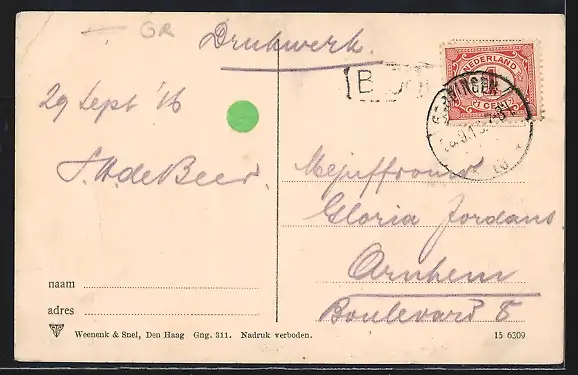 GR
Drukwerk.
NEDERLAND
1 CENT
GRONINGEN
29 Sept '16
Mejuffrouw
Gloria Jordans
Arnhem
Boulevard 8
naam
adres
Weenenk & Snel, Den Haag Gng. 311. Nadruk verboden.
15 6309